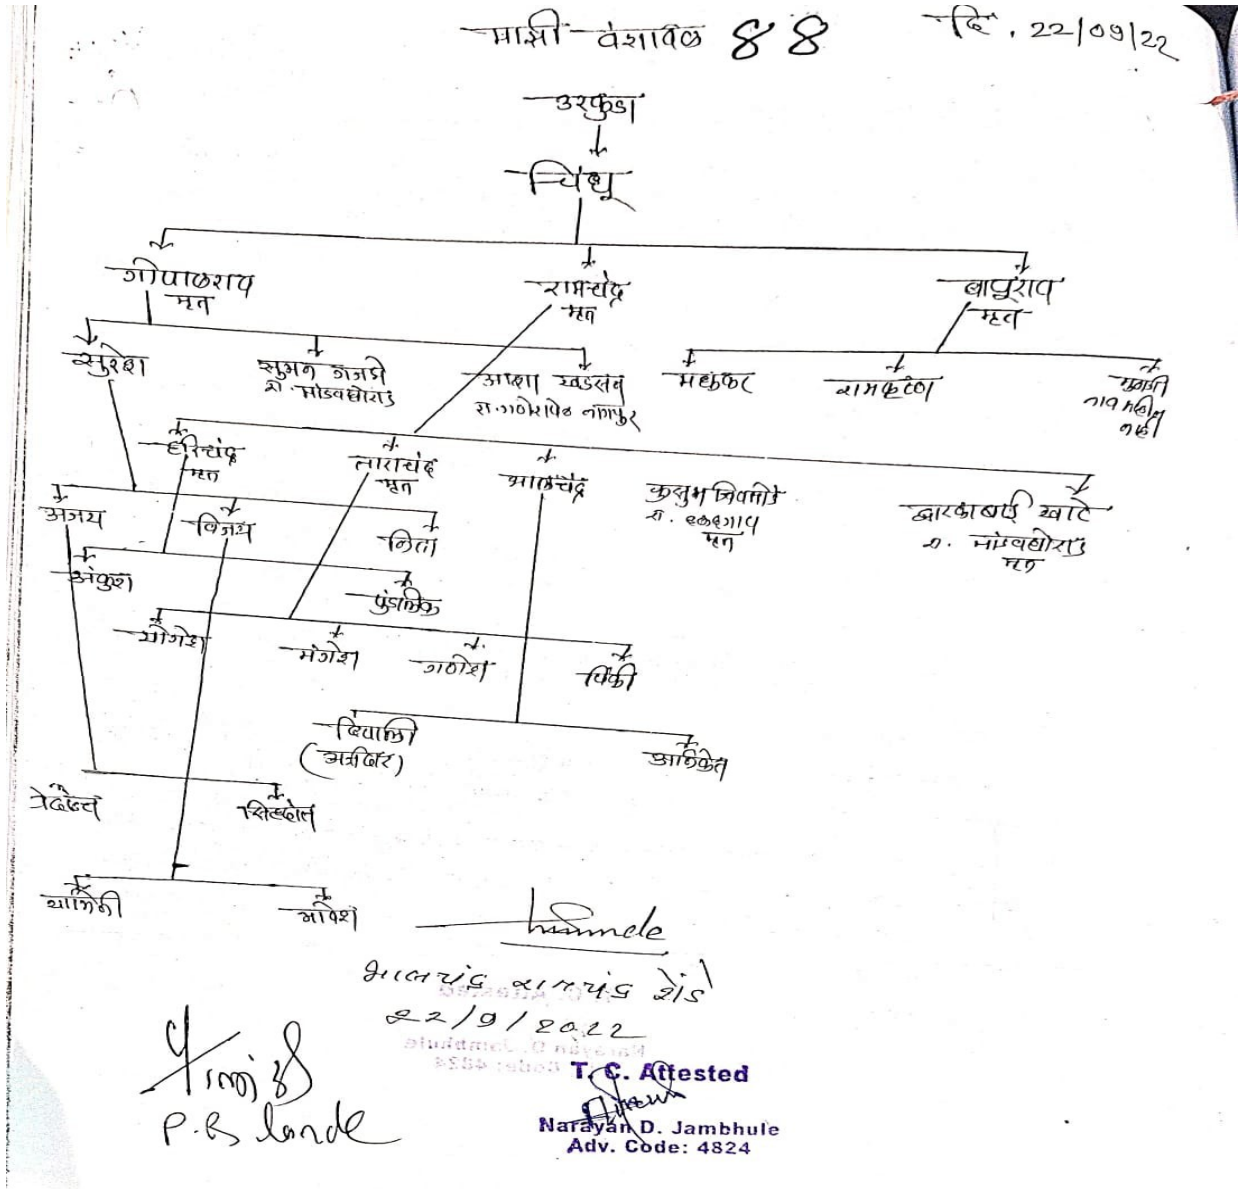 माझी वंशावळ 88
दि. 22/09/22
उरकुडा
चिंधू
गोपाळराव
मृत
रामचंद्र
मृत
बापुराव
मृत
सुरेश
सुमन गजभे
रा. मांडवघोराड
आशा खडसंग
रा. गणेशपेठ नागपुर
मधुकर
रामकृष्ण
मुलगी
नाव माहीत
नाही
हरिचंद्र
मृत
ताराचंद
मृत
भालचंद्र
कुसुम
रा. हळदगाव
मृत
द्वारकाबाई खाटे
रा. मांडवघोराड
मृत
अजय
विजय
निता
अंकुश
पुंडलिक
योगेश
मंगेश
गणेश
पिंकी
दिपाली
(अर्जदार)
अनिकेत
सिध्दांत
यामिनी
भावेश
भालचंद्र रामचंद्र शेंडे
22/9/2022
P.B. Lande
T. C. Attested
Narayan D. Jambhule
Adv. Code: 4824